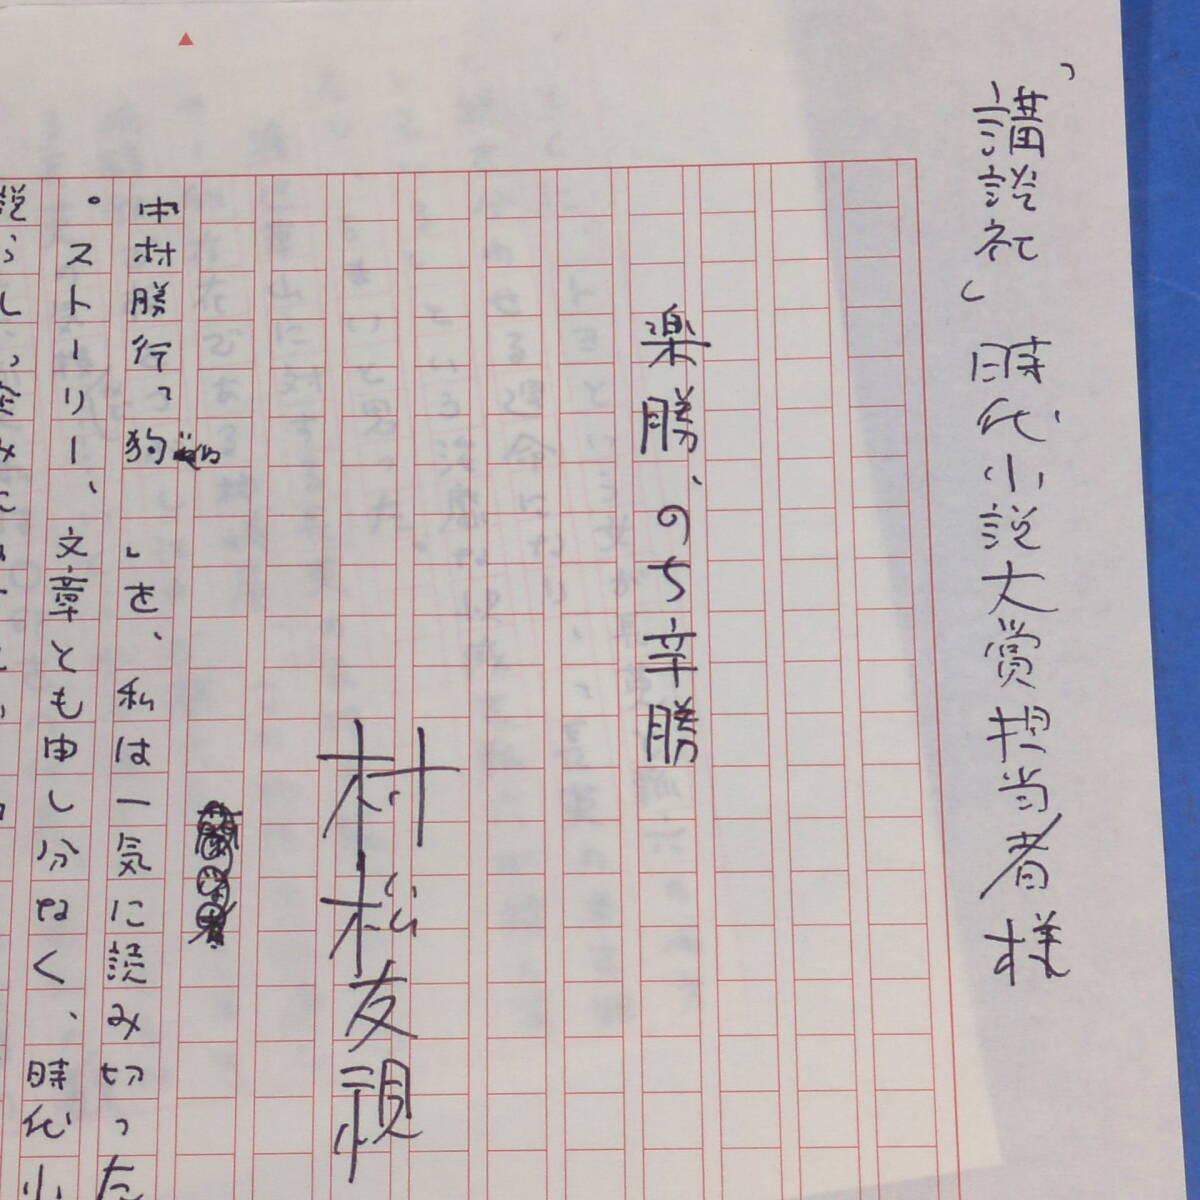 「講談社」時代小説大賞担当者様
楽勝、のち辛勝
村松友視
中村勝行「狗 」を、私は一気に読み切った
。ストーリー、文章とも申し分なく、時代小